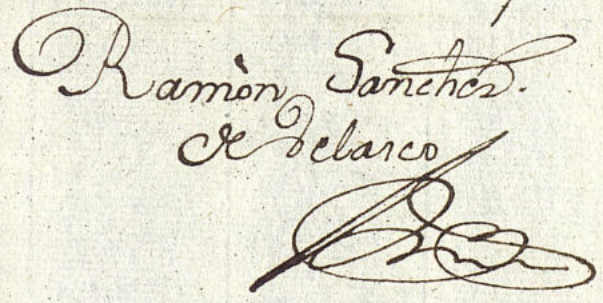 Ramòn Sanchez.
de Velasco